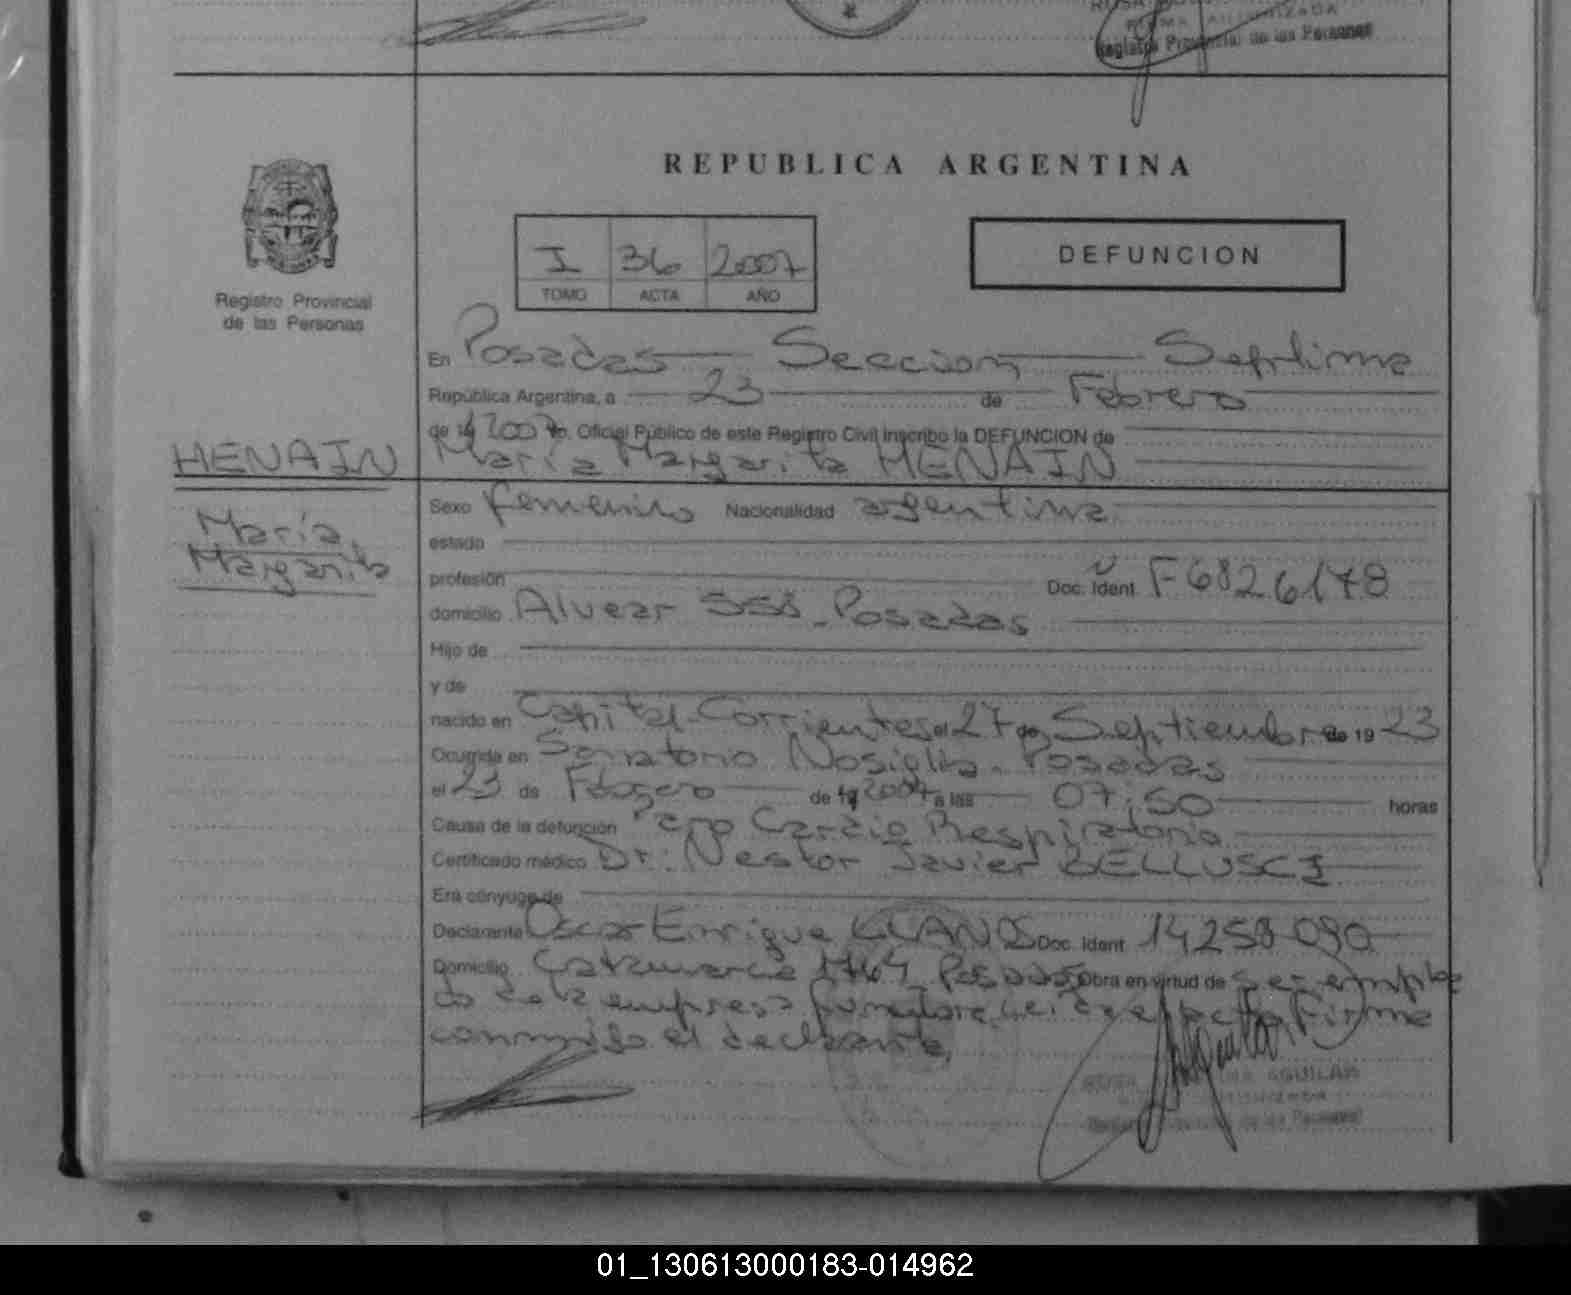 Registro Provincial de las Personas
REPUBLICA ARGENTINA
I 36 2007
TOMO ACTA AÑO
DEFUNCION
Registro Provincial
de las Personas
En Posadas Seccion Septima
República Argentina, a 23 de Febrero
de 19 2007 yo, Oficial Público de este Registro Civil inscribo la DEFUNCION de
HENAIN María Margarita HENAIN
Sexo femenino Nacionalidad argentina
María
Margarita
estado
profesión Doc. Ident. F 6826178
domicilio Alvear 558 - Posadas
Hijo de
y de
nacido en Capital - Corrientes el 27 de Septiembre de 19 23
Ocurrida en Sanatorio Nosiglia - Posadas
el 23 de Febrero de 19 2007 a las 07:50 horas
Causa de la defunción Paro Cardio Respiratorio
Certificado médico Dr. Nestor Javier BELLUSCI
Era cónyuge de
Declarante Oscar Enrique LLANOS Doc. Ident. 14.258.090
Domicilio Catamarca 1764 Posadas Obra en virtud de ser emplea
do de la empresa funebre, Leida el acta Firma
conmigo el declarante,
AGUILAR
de las Personas
01_130613000183-014962